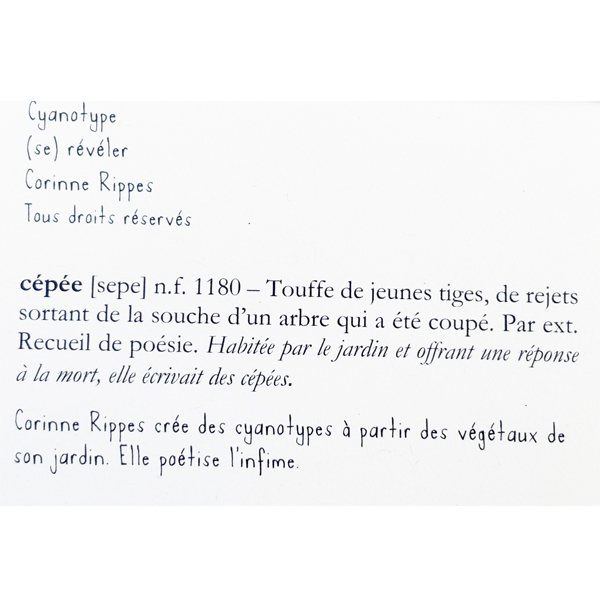 Cyanotype
(se) révéler
Corinne Rippes
Tous droits réservés
cépée [sepe] n.f. 1180 – Touffe de jeunes tiges, de rejets
sortant de la souche d'un arbre qui a été coupé. Par ext.
Recueil de poésie. Habitée par le jardin et offrant une réponse
à la mort, elle écrivait des cépées.
Corinne Rippes crée des cyanotypes à partir des végétaux de
son jardin. Elle poétise l'infime.